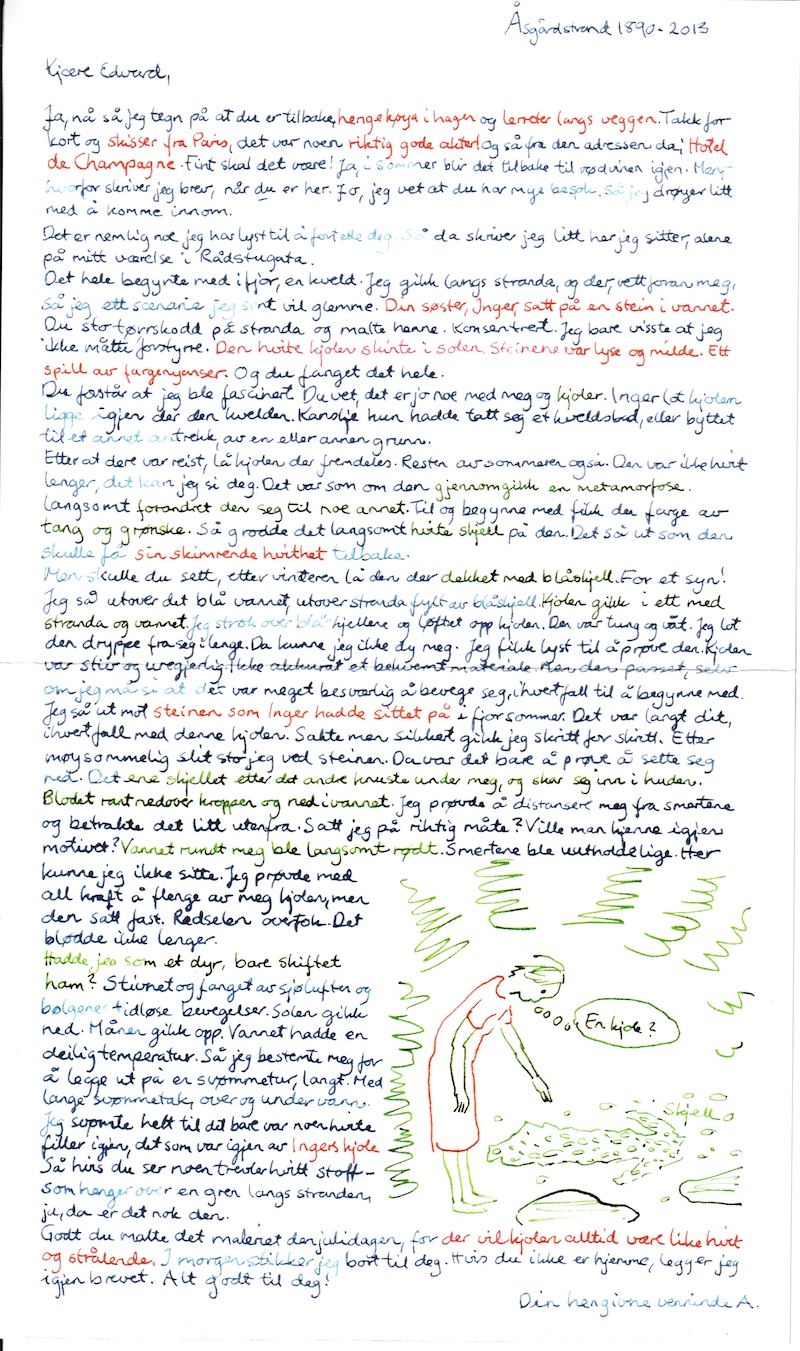 Åsgårdstrand 1890-2013
Kjære Edvard,
Ja, nå så jeg tegn på at du er tilbake, hengekøya i hagen og lerreter langs veggen. Takk for
kort og skisser fra Paris, det var noen riktig gode akter! Og så fra den adressen da; Hotel
de Champagne. Fint skal det være! Ja, i sommer blir det tilbake til rødvinen igjen. Men,
hvorfor skriver jeg brev, når du er her. Jo, jeg vet at du har mye besøk, så jeg drøyer litt
med å komme innom.
Det er nemlig noe jeg har lyst til å fortelle deg. Så da skriver jeg litt her jeg sitter, alene
på mitt værelse i Rådstugata.
Det hele begynte med i fjor, en kveld. Jeg gikk langs stranda, og der, rett foran meg,
så jeg ett scenarie jeg sent vil glemme. Din søster, Inger, satt på en stein i vannet.
Du sto tørrskodd på stranda og malte henne. Konsentrert. Jeg bare visste at jeg
ikke måtte forstyrre. Den hvite kjolen skinte i solen. Steinene var lyse og milde. Ett
spill av fargenyanser. Og du fanget det hele.
Du forstår at jeg ble fascinert. Du vet, det er jo noe med meg og kjoler. Inger lot kjolen
ligge igjen der den kvelden. Kanskje hun hadde tatt seg et kveldsbad, eller byttet
til et annet antrekk, av en eller annen grunn.
Etter at dere var reist, lå kjolen der fremdeles. Resten av sommeren også. Den var ikke hvit
lenger, det kan jeg si deg. Det var som om den gjennomgikk en metamorfose.
Langsomt forandret den seg til noe annet. Til og begynne med fikk den farge av
tang og grønske. Så grodde det langsomt hvite skjell på den. Det så ut som den
skulle få sin skimrende hvithet tilbake.
Men skulle du sett, etter vinteren lå den der dekket med blåskjell. For et syn!
Jeg så utover det blå vannet, utover stranda fylt av blåskjell. Kjolen gikk i ett med
stranda og vannet. Jeg strøk over blåskjellene og løftet opp kjolen. Den var tung og våt. Jeg lot
den dryppe fra seg i lenge. Da kunne jeg ikke dy meg. Jeg fikk lyst til å prøve den. Kjolen
var stiv og uregjerlig. Ikke akkurat et bekvemt materiale. Men den passet, selv
om jeg må si at det var meget besværlig å bevege seg, ihvertfall til å begynne med.
Jeg så ut mot steinen som Inger hadde sittet på i fjor sommer. Det var langt dit,
ihvertfall med denne kjolen. Sakte men sikkert gikk jeg skritt for skritt. Etter
møysommelig slit sto jeg ved steinen. Da var det bare å prøve å sette seg
ned. Det ene skjellet etter det andre knuste under meg, og skar seg inn i huden.
Blodet rant nedover kroppen og ned i vannet. Jeg prøvde å distansere meg fra smertene
og betrakte det litt utenfra. Satt jeg på riktig måte? Ville man kjenne igjen
motivet? Vannet rundt meg ble langsomt rødt. Smertene ble uutholdelige. Her
kunne jeg ikke sitte. Jeg prøvde med
all kraft å flenge av meg kjolen, men
den satt fast. Redselen overtok. Det
blødde ikke lenger.
Hadde jeg som et dyr, bare skiftet
ham? Stivnet og fanget av sjøluften og
bølgenes tidløse bevegelser. Solen gikk
ned. Månen gikk opp. Vannet hadde en
deilig temperatur. Så jeg bestemte meg for
å legge ut på en svømmetur, langt. Med
lange svømmetak, over og under vann.
Jeg svømte helt til det bare var noen hvite
filler igjen, det som var igjen av Ingers kjole
Så hvis du ser noen trevler hvitt stoff -
som henger over en gren langs stranden,
ja, da er det nok den.
Godt du malte det maleriet den julidagen, for der vil kjolen alltid være like hvit
og strålende. I morgen stikker jeg bort til deg. Hvis du ikke er hjemme, legger jeg
igjen brevet. Alt godt til deg!
Din hengivne venninde A.
En kjole?
Skjell